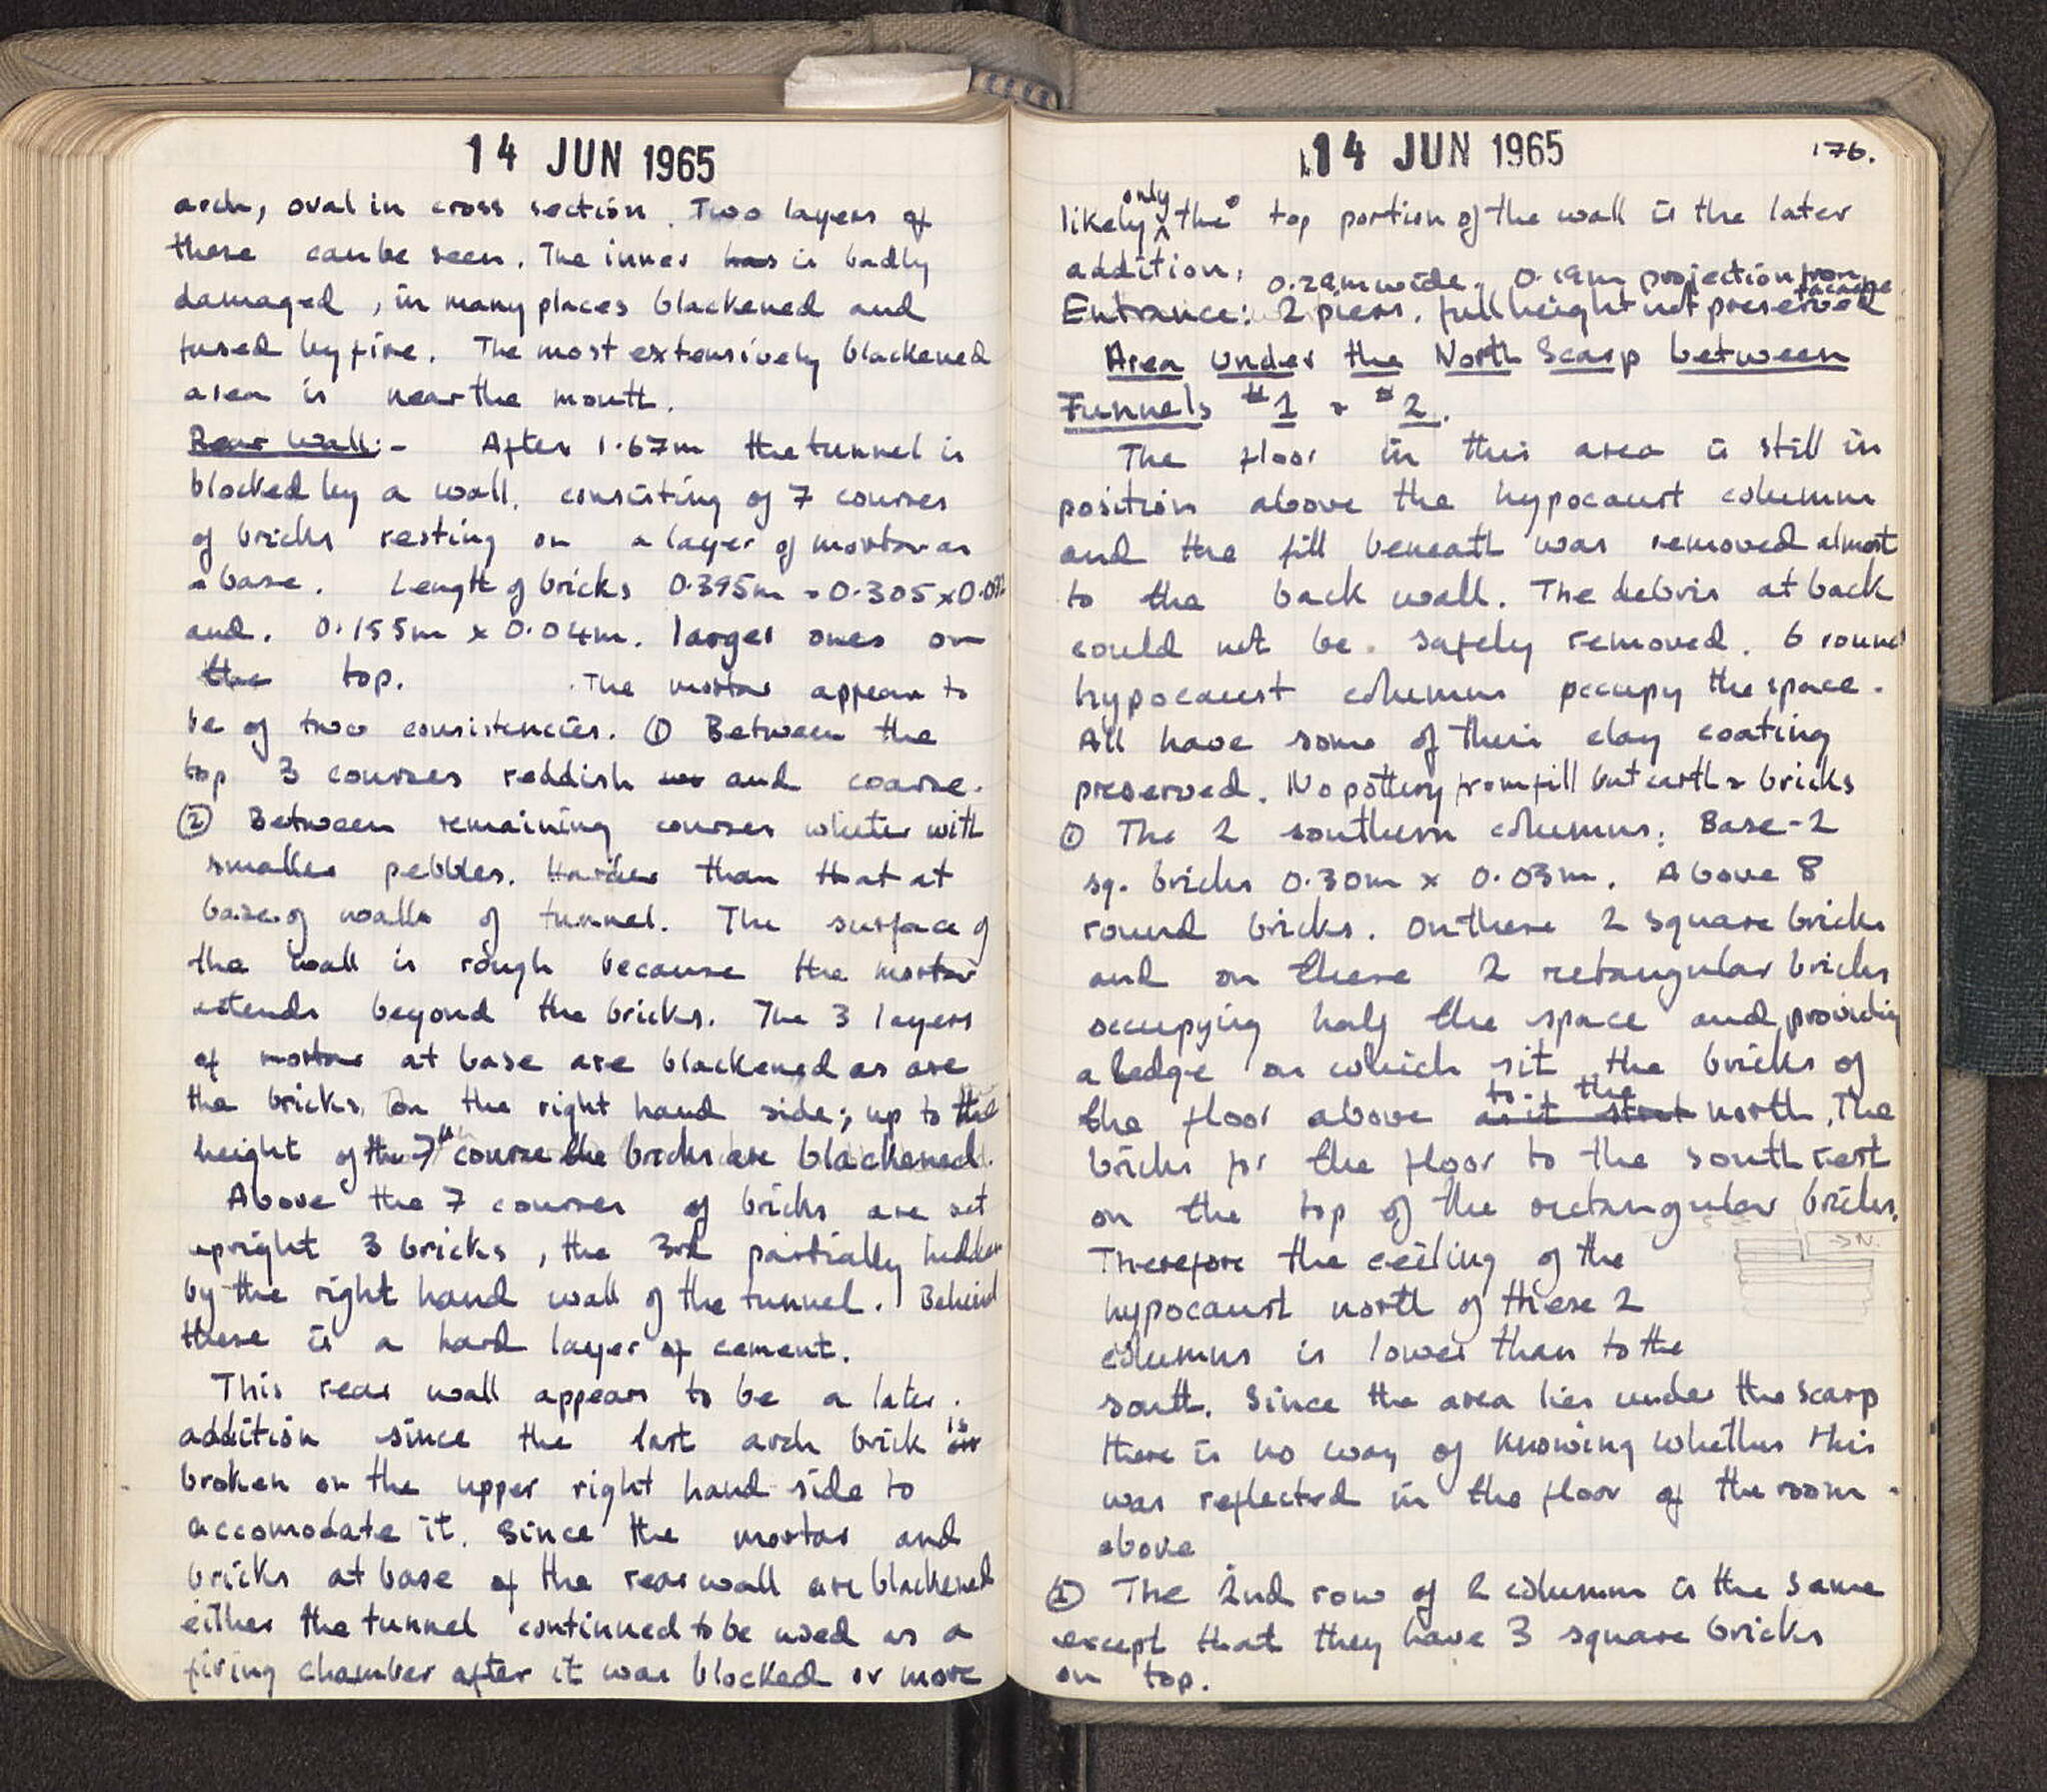 14 JUN 1965
arch, oval in cross section. Two layers of
these can be seen. The inner has is badly
damaged, in many places blackened and
fused by fire. The most extensively blackened
area is near the mouth.
Rear Wall:- After 1.67m the tunnel is
blocked by a wall, consisting of 7 courses
of bricks resting on a layer of mortar as
a base. Length of bricks 0.395m - 0.305 x 0.0
and. 0.155m x 0.04m. larger ones on
the top. The mortar appears to
be of two consistencies. ① Between the
top 3 courses reddish and coarse.
② Between remaining courses whiter with
smaller pebbles. Harder than that at
base of walls of tunnel. The surface of
the wall is rough because the mortar
extends beyond the bricks. The 3 layers
of mortar at base are blackened as are
the bricks. On the right hand side; up to the
height of the 7th course the bricks are blackened.
Above the 7 courses of bricks are set
upright 3 bricks, the 3rd partially hidden
by the right hand wall of the tunnel. Behind
these is a hard layer of cement.
This rear wall appears to be a later
addition since the last arch brick is
broken on the upper right hand side to
accomodate it. Since the mortar and
bricks at base of the rear wall are blackened
either the tunnel continued to be used as a
firing chamber after it was blocked or more
14 JUN 1965 176.
likely only the top portion of the wall is the later
addition. 0.29m wide. 0.19m projection from facade
Entrance: 2 piers. full height not preserved
Area Under the North Scarp between
Tunnels #1 & #2.
The floor in this area is still in
position above the hypocaust columns
and the fill beneath was removed almost
to the back wall. The debris at back
could not be safely removed. 6 round
hypocaust columns occupy the space.
All have some of their clay coating
preserved. No pottery from fill but earth & bricks
① The 2 southern columns: Base-2
sq. bricks 0.30m x 0.03m. Above 8
round bricks. On these 2 square bricks
and on these 2 retangular bricks
occupying half the space and providing
a ledge on which sit the bricks of
the floor above as it to the north. The
bricks for the floor to the south rest
on the top of the rectangular bricks.
→N.
Therefore the ceiling of the
hypocaust north of these 2
columns is lower than to the
south. Since the area lies under the scarp
there is no way of knowing whether this
was reflected in the floor of the room
above
② The 2nd row of 2 columns is the same
except that they have 3 square bricks
on top.